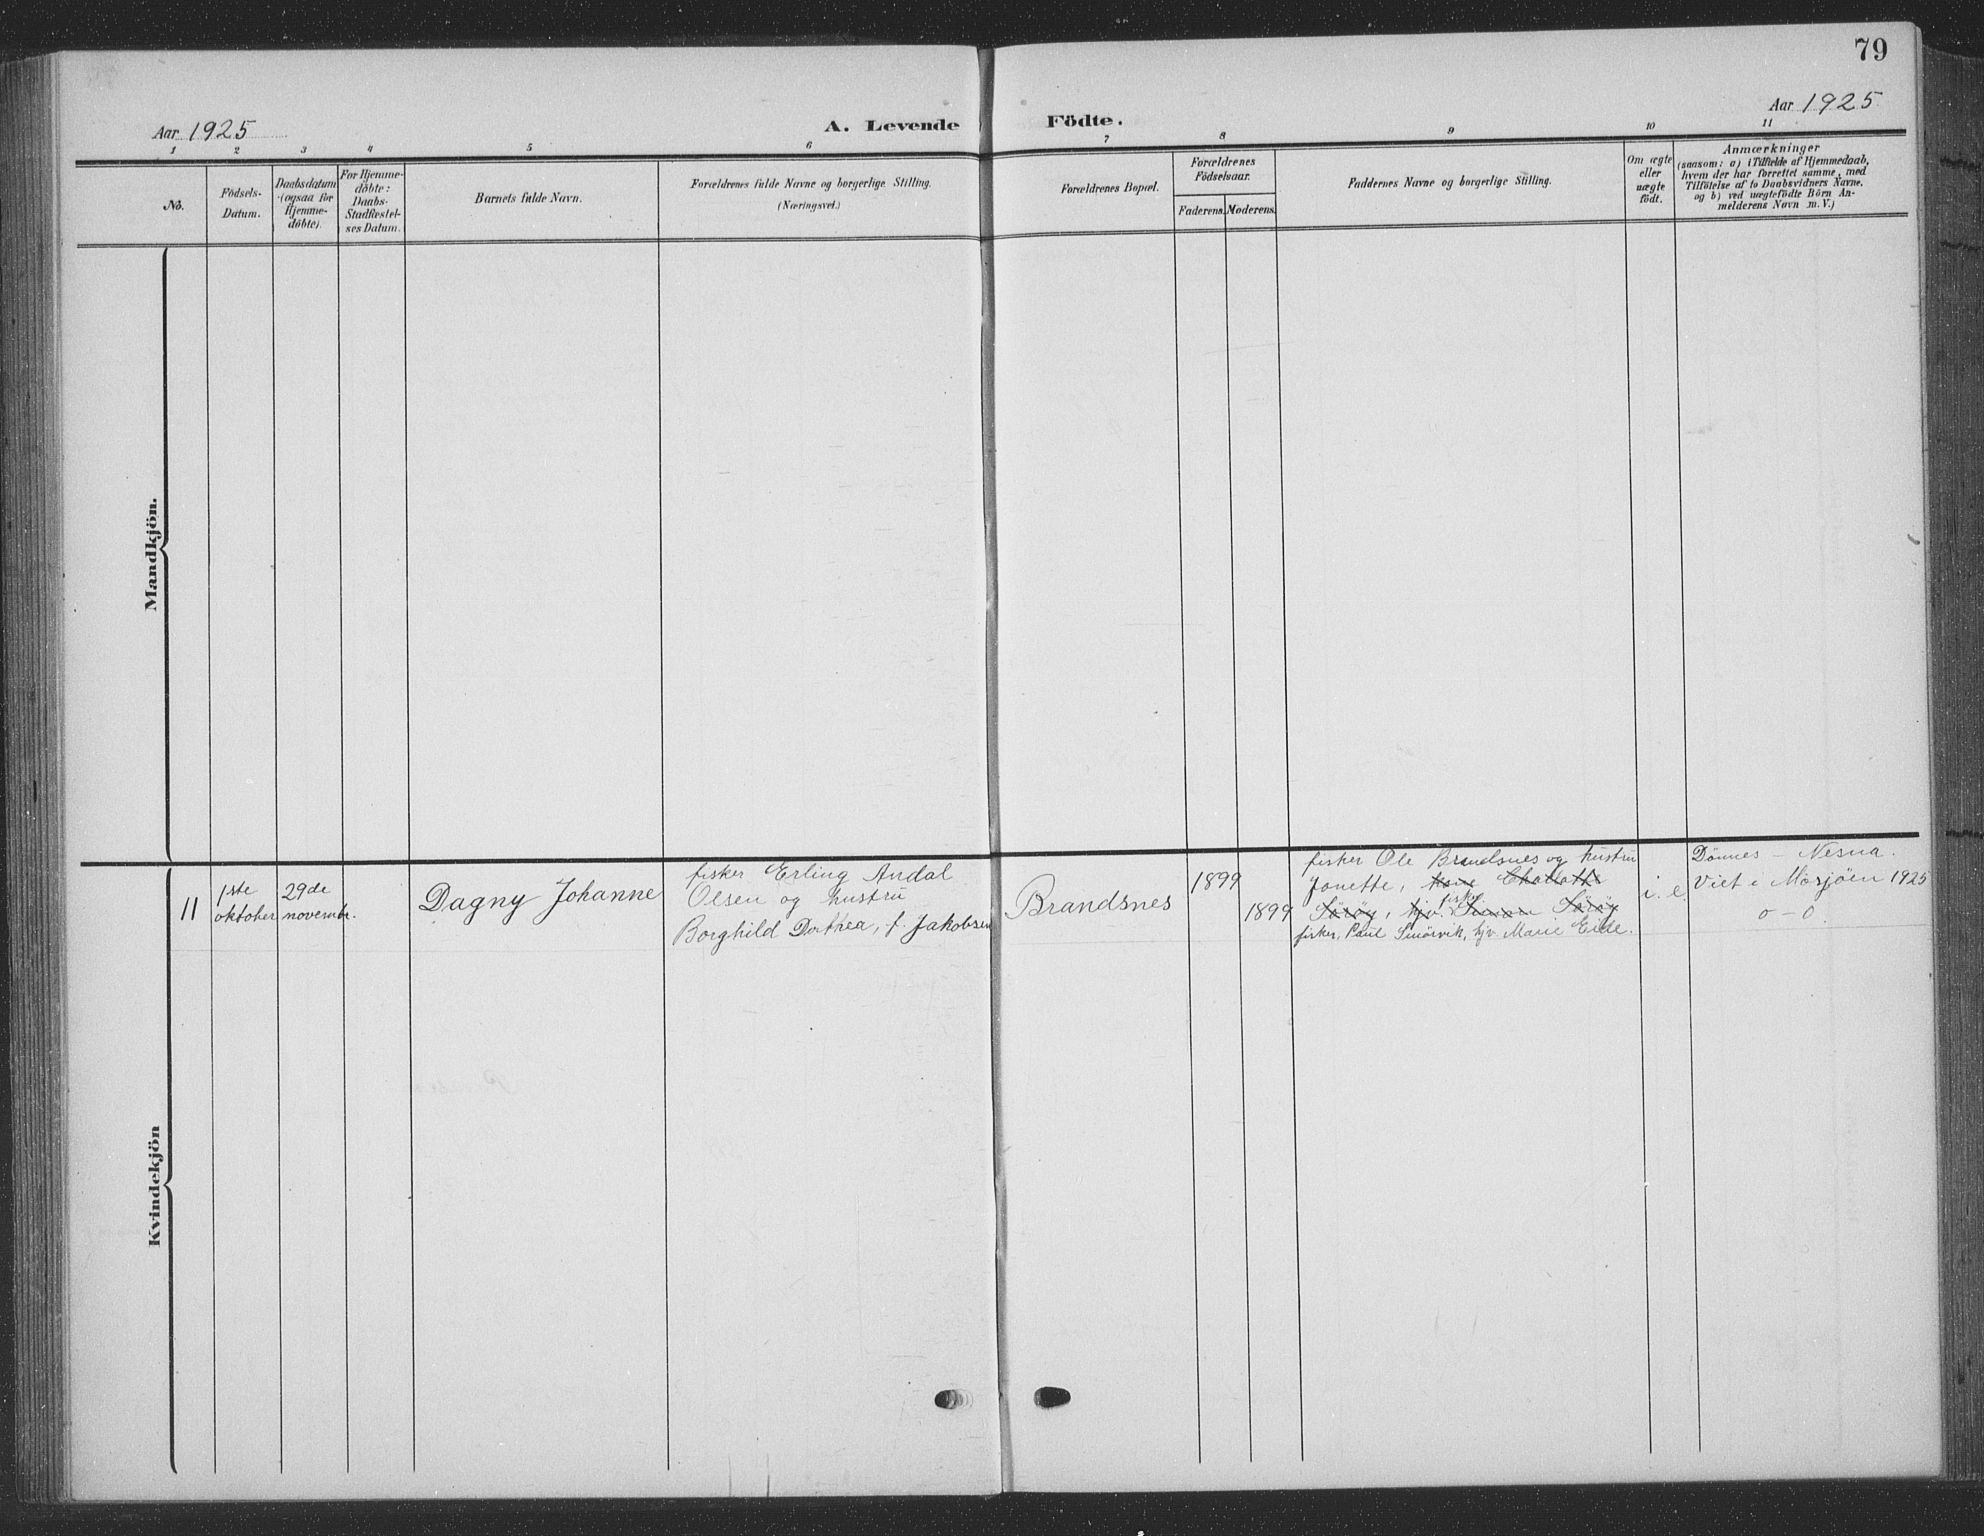 79
Aar 1925
A. Levende Födte.
Aar 1925
1 2 3 4 5 6 7 8 9 10 11
No.
Födsels-
Datum.
Daabsdatum
(ogsaa for
Hjemme-
döbte).
For Hjemme-
döbte:
Daabs-
Stadfæstel-
ses Datum.
Barnets fulde Navn.
Forældrenes fulde Navne og borgerlige Stilling.
(Næringsvei.)
Forældrenes Bopæl.
Forældrenes
Födselsaar.
Faderens. Moderens.
Faddernes Navne og borgerlige Stilling.
Om ægte
eller
uægte
födt.
Anmærkninger
(saasom: a) i Tilfælde af Hjemmedaab,
hvem der har forrettet samme, med
Tilföielse af to Daabsvidners Navne,
og b) ved uægtefödte Börn An-
melderens Navn m. V.)
Mandkjön.
Kvindekjön
11
1ste
oktober
29de
novembr.
Dagny Johanne
fisker Erling Andal
Olsen og hustru
Borghild Dorthea, f. Jakobsen
Brandsnes
1899
1899
fisker Ole Brandsnes og hustru
Jonette, kone Charlotte
fisker
Sörøy, hjv. Simon Sörøy
fisker, Paul Smörvik, hjv. Marie Eide.
i. e.
Dönnes – Nesna.
Viet i Mosjöen 1925
o – o.